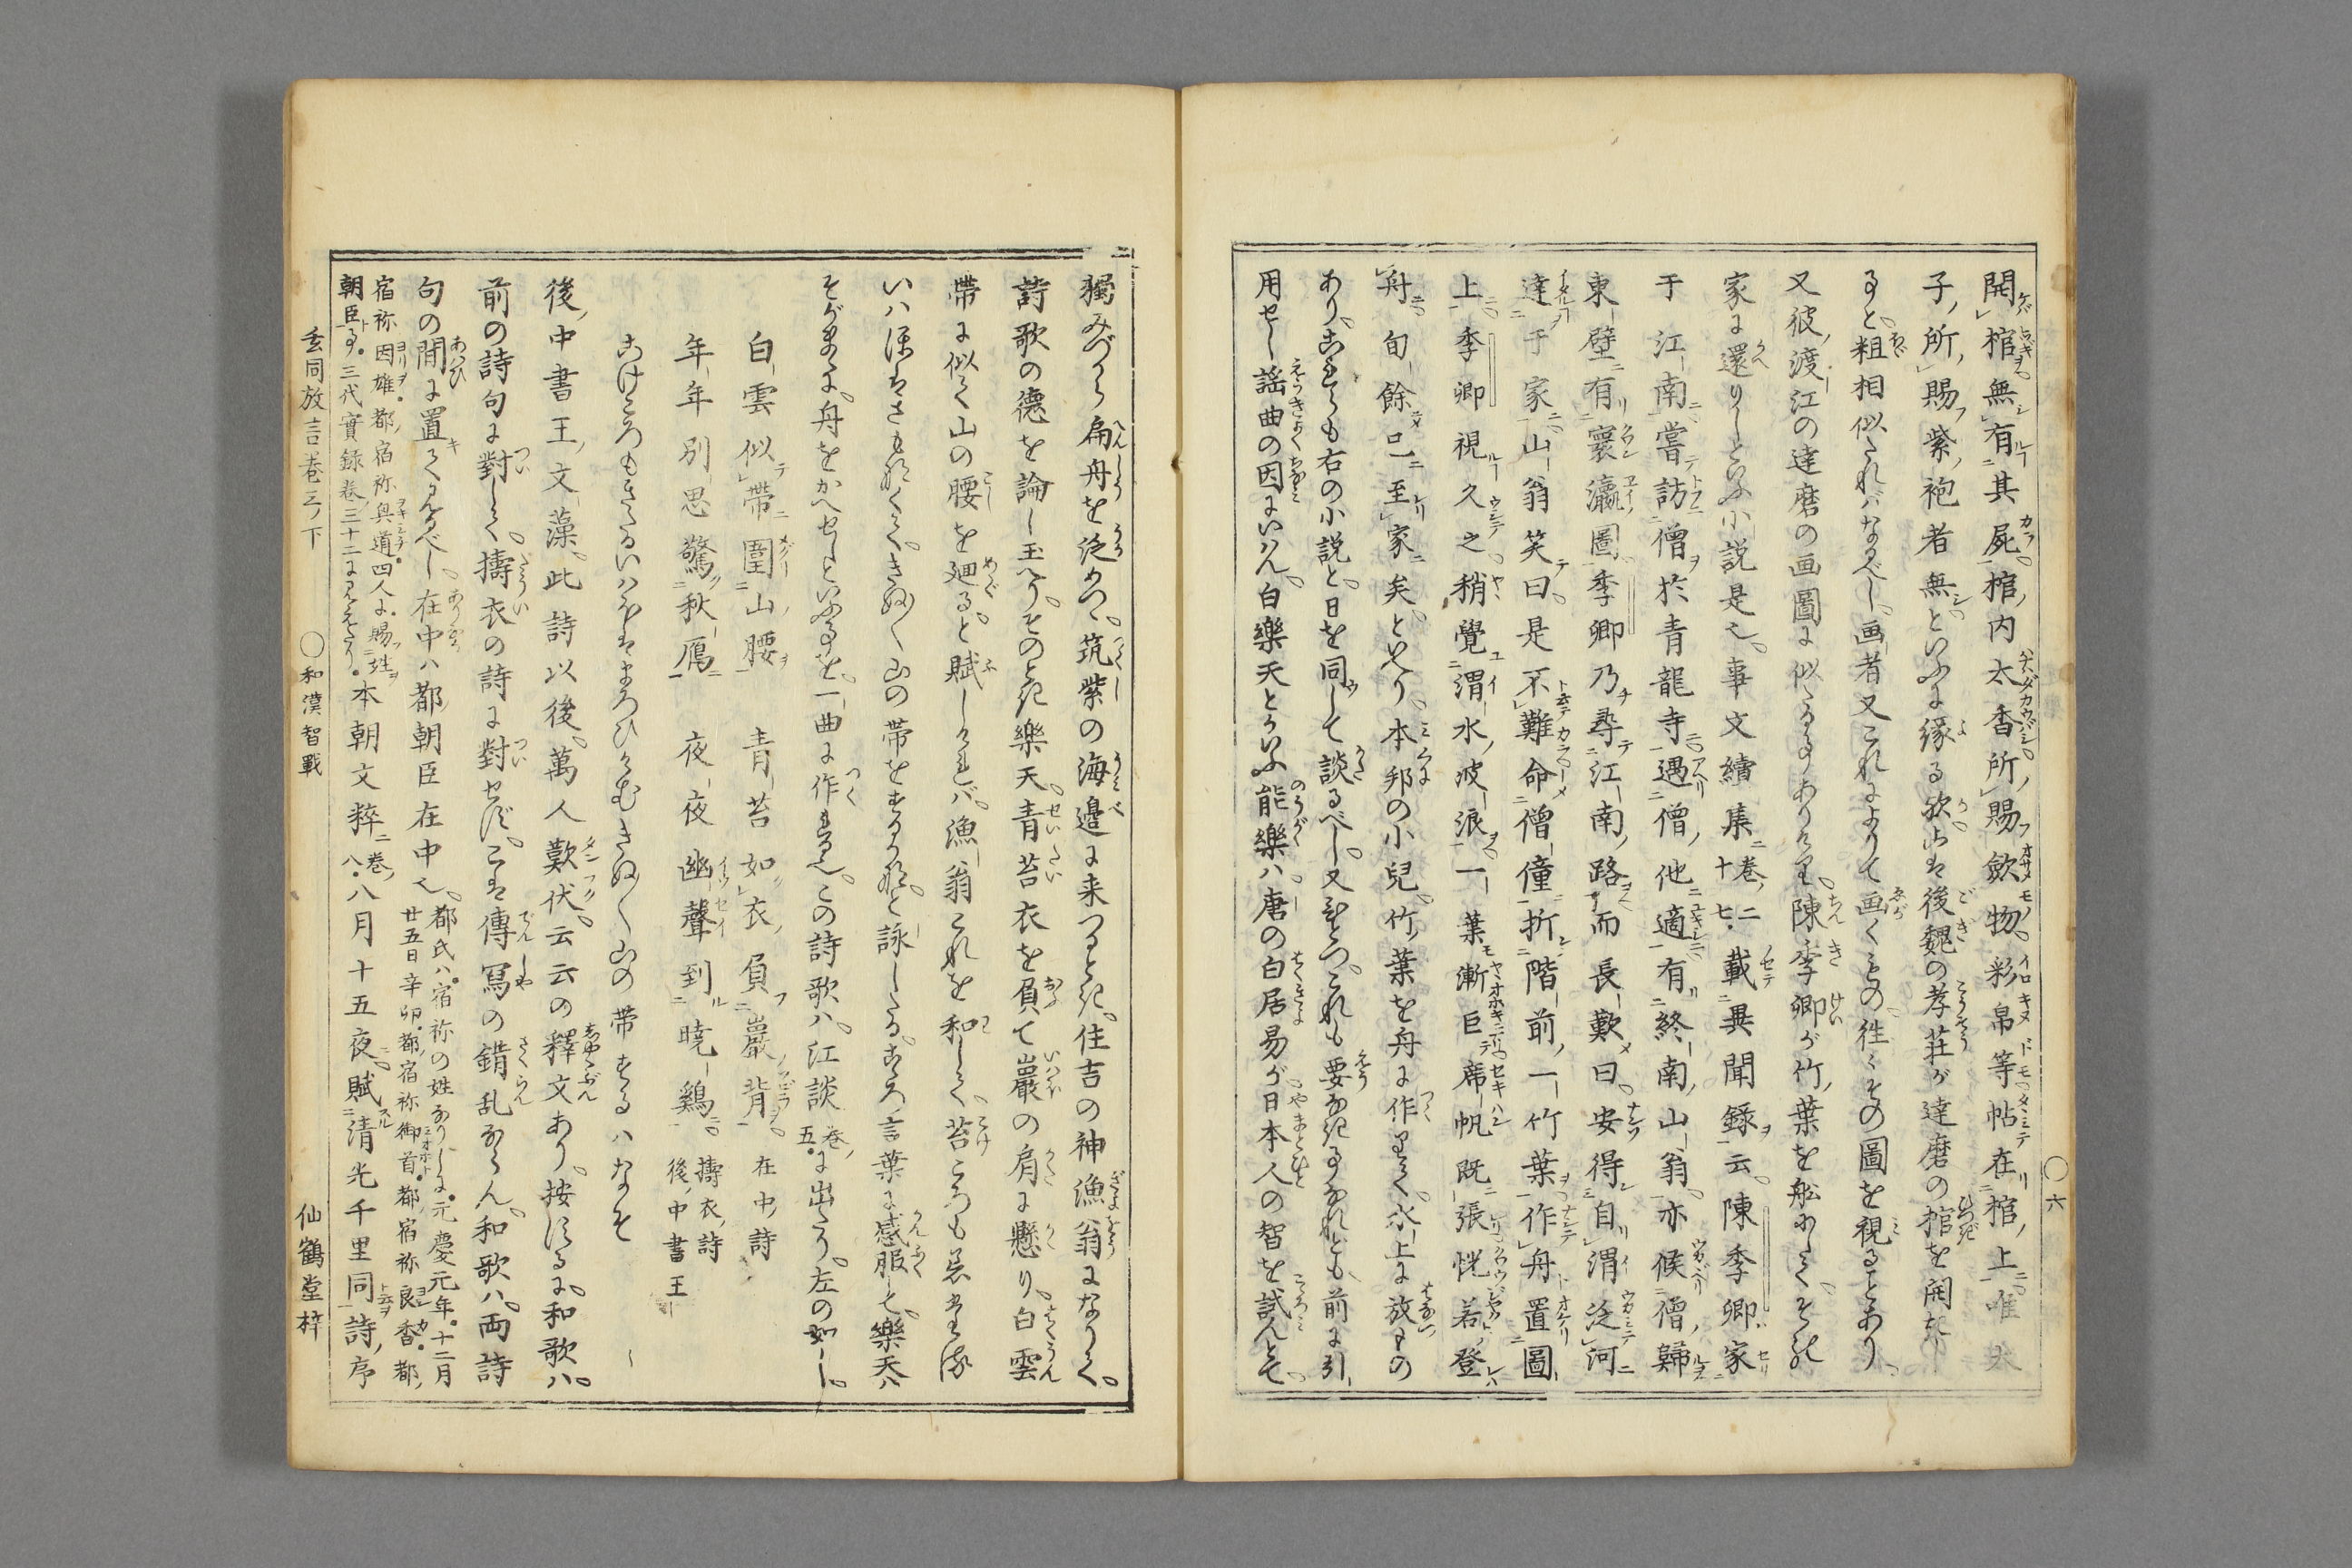 開棺無有其屍棺内太香所賜歛物彩帛等帖在棺上唯失
子所賜紫袍者無といふに縁る欤こは後魏の孝荘が達磨の棺を開たる
ると粗相似たればなるべし画者又これによりて画くもの徃々その圖を視ることあり
又彼渡江の達磨の画圖に似たる事ありけり陳季卿が竹葉を舩にして
家に還りしといふ小説是也事文續集巻二十七載異聞録云陳季卿家
于江南嘗訪僧於青龍寺遇僧他適有終南山翁亦候僧歸
東壁有寰瀛圖季卿乃尋江南路而長歎曰安得自渭泛河
達于家山翁笑曰是不難命僧僮折階前一竹葉作舟置圖
上季卿視久之稍覺渭水波浪一葉漸巨席帆既張恍若登
舟旬餘至家矣といへり本邦の小兒竹葉を舟に作りて水上に放もの
あり これらも右の小説と日を同して談るべし又これも要なき事なれども前に引
用せし謡曲の因にいはん白樂天といふ能樂ハ唐の白居易が日本人の智を試んとて
○六
獨みづから扁舟を泛めつゝ筑紫の海邉に来つるとき住吉の神漁翁になりて
詩歌の徳を論し玉へりそのとき樂天青苔衣を負て巖の肩に懸り白雲
帯に似て山の腰を廻ると賦しければ漁翁これを和して苔ころも着たる
いはほはさもなくてきぬ〳〵山の帯をするかなと詠じたる言葉に感服して樂天ハ
そがまゝに舟をかへせしといふ事を一曲に作れる也この詩歌ハ江談巻五に出たり左の如し
白雲似帶圍山腰 青苔如衣負巖背 在中詩
年年別思驚秋鴈 夜夜幽聲到曉鷄 擣衣詩後中書王
こけころもきたるいはほはまろひけむきぬ〳〵山の帯するハなそ
後中書王文藻此詩以後萬人歎伏云云の釋文あり按ずるに和歌ハ
前の詩句に對して擣衣の詩に對せずこは傳冩の錯乱ならん和歌ハ両詩
句の間に置て見るべし在中ハ都朝臣在中也都氏ハ宿祢の姓なりしに元慶元年十二月
廿五日辛卯都宿祢御酋都宿祢良香都
宿祢因雄都宿祢興道四人に賜姓
朝臣る三代實録巻三十二に見えたり本朝文粹巻八八月十五夜賦清光千里同詩序
玄同放言巻三下 ○和漢智戰 仙鶴堂梓